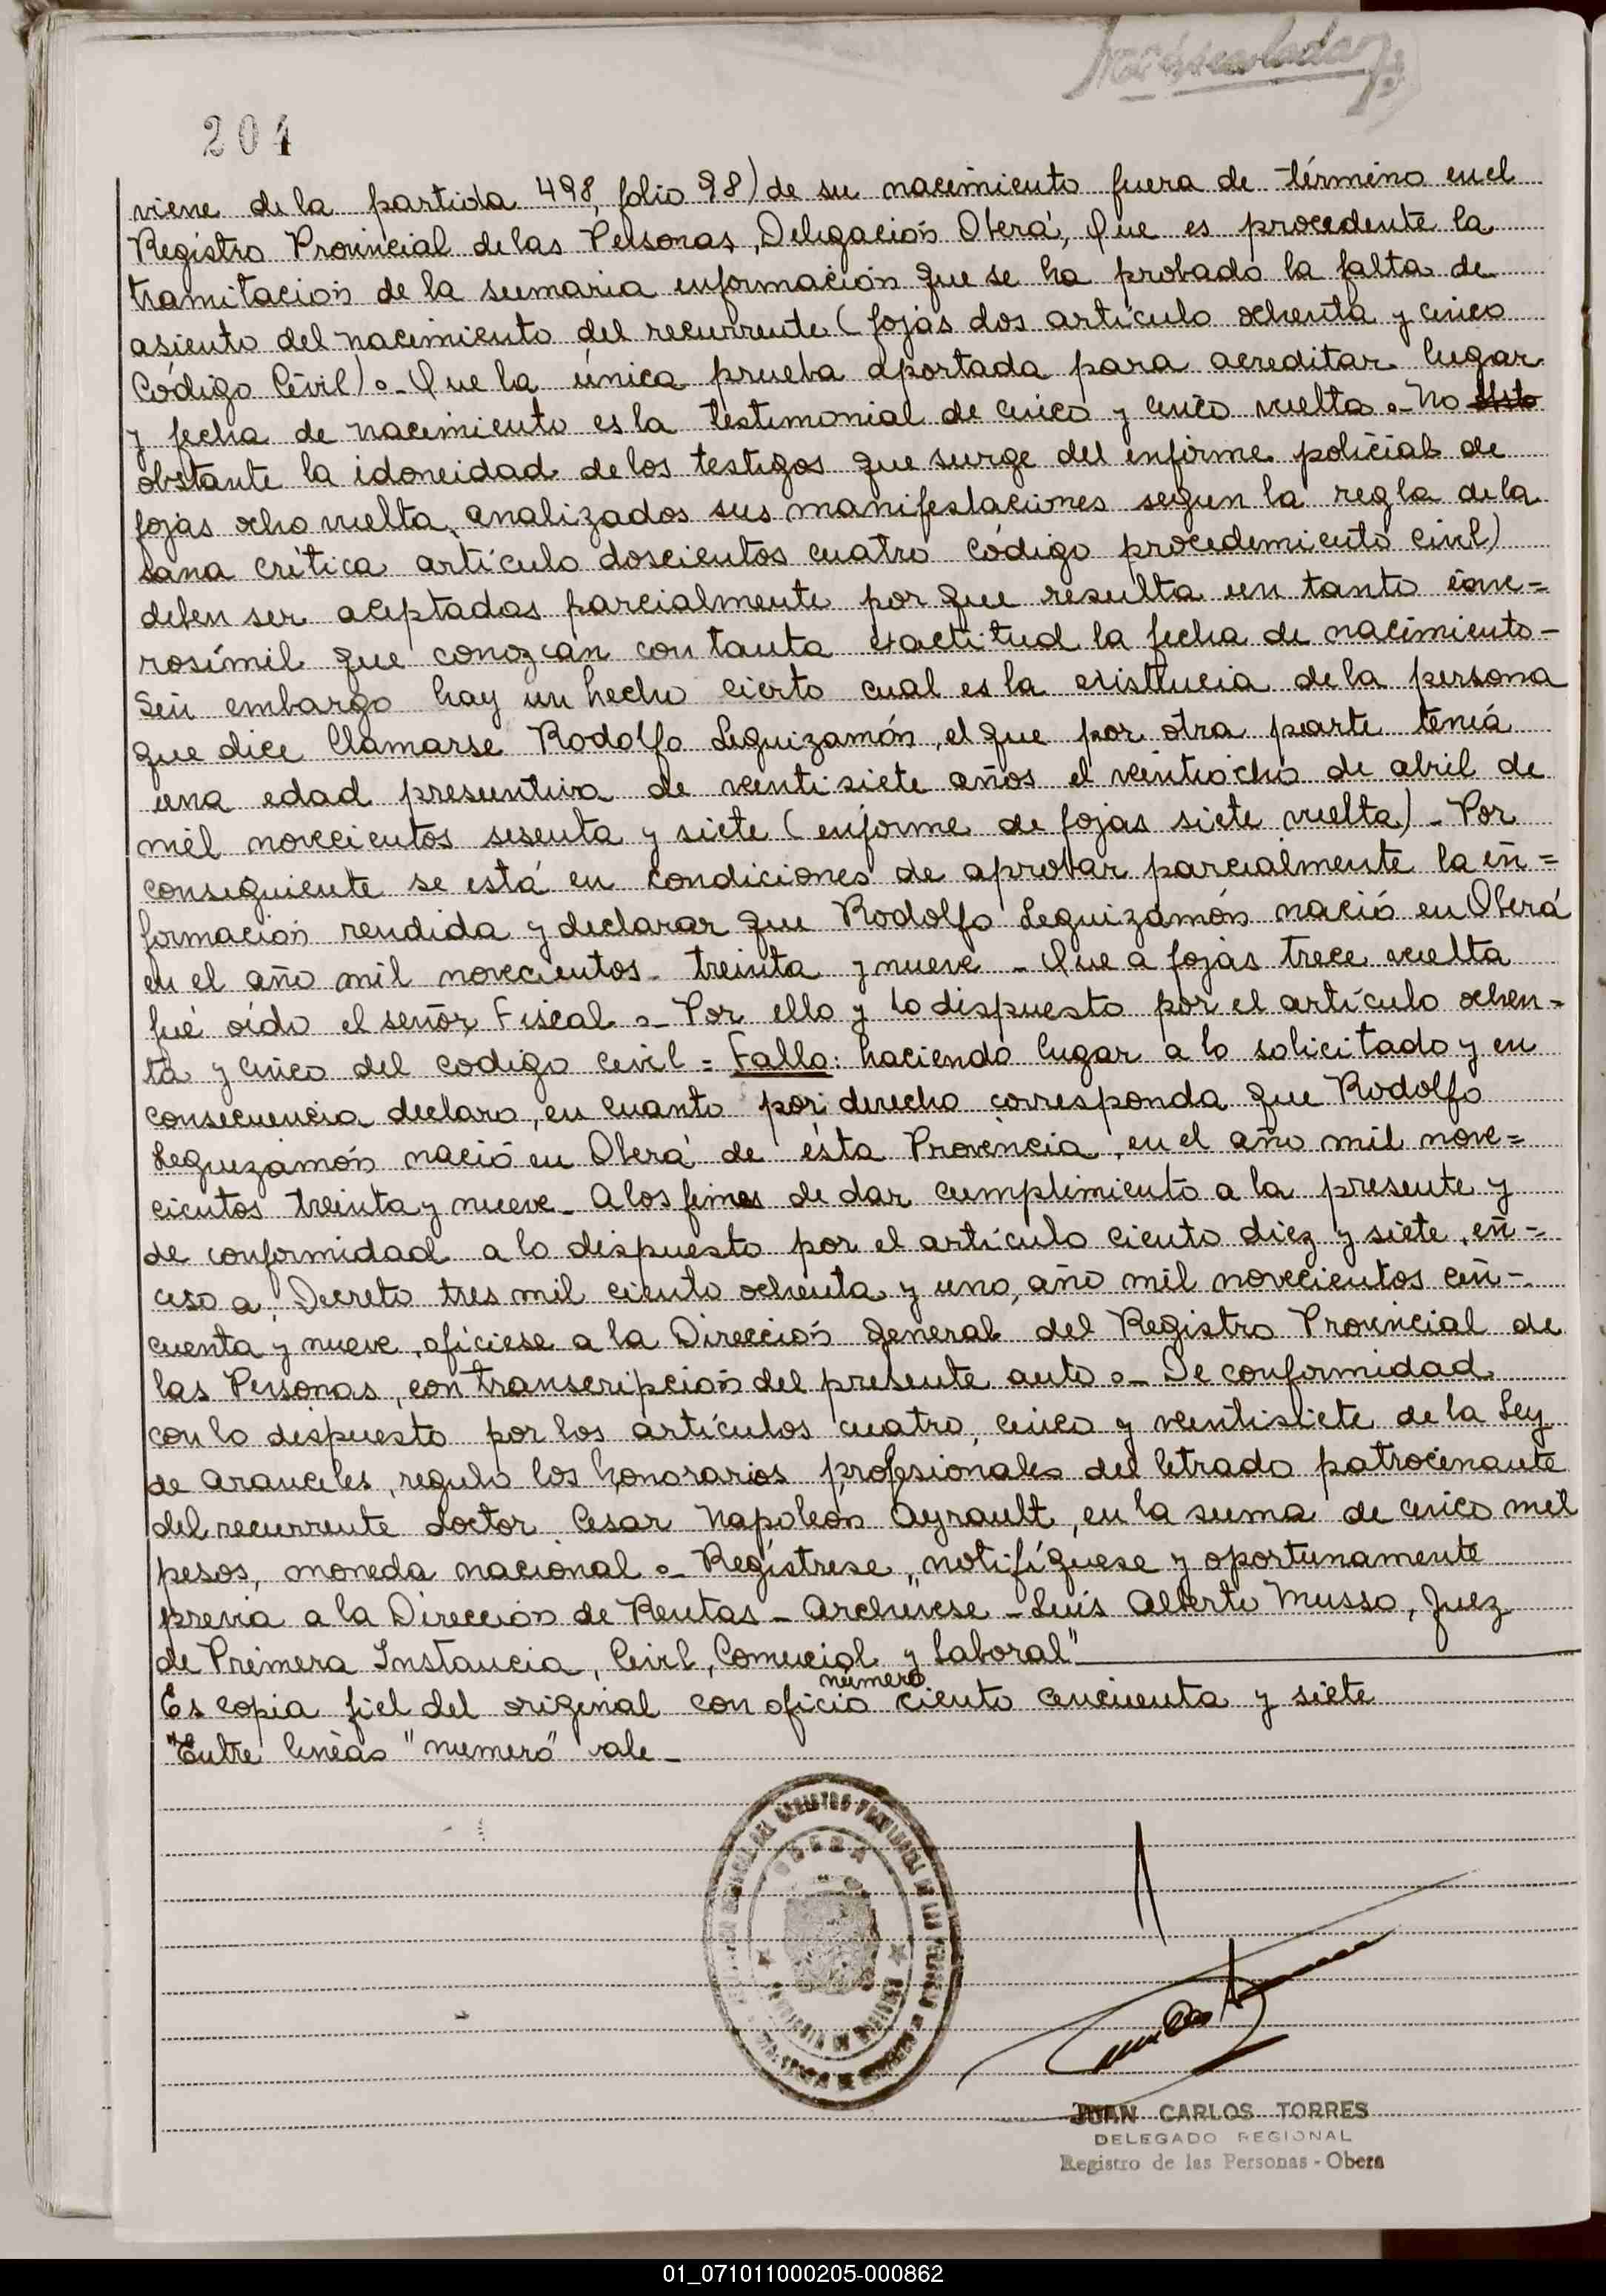 204
viene de la partida 498, folio 98) de su nacimiento fuera de término en el
Registro Provincial de las Personas, Delegación Oberá, Que es procedente la
tramitación de la sumaria información que se ha probado la falta de
asiento del nacimiento del recurrente (fojas dos artículo ochenta y cinco
Código Civil).- Que la única prueba aportada para acreditar lugar
y fecha de nacimiento es la testimonial de cinco y cinco vuelta.- No
obstante la idoneidad de los testigos que surge del informe policial de
fojas ocho vuelta, analizados sus manifestaciones segun la regla de la
sana crítica artículo doscientos cuatro código procedimiento civil)
deben ser aceptadas parcialmente por que resulta un tanto inve=
rosímil que conozcan con tanta exactitud la fecha de nacimiento-
Sin embargo hay un hecho cierto cual es la existencia de la persona
que dice llamarse Rodolfo Leguizamón, el que por otra parte tenía
una edad presuntiva de ventisiete años el ventiocho de abril de
mil novecientos sesenta y siete (informe de fojas siete vuelta) - Por
consiguiente se está en condiciones de aprobar parcialmente la in=
formación rendida y declarar que Rodolfo Leguizamón nació en Oberá
en el año mil novecientos treinta y nueve - Que a fojas trece vuelta
fué oído el señor Fiscal.- Por ello y lo dispuesto por el artículo ochen=
ta y cinco del codigo civil = Fallo: haciendo lugar a lo solicitado y en
consecuencia declaro, en cuanto por derecho corresponda que Rodolfo
Leguizamón nació en Oberá de ésta Provincia, en el año mil nove=
cientos treinta y nueve - A los fines de dar cumplimiento a la presente y
de conformidad a lo dispuesto por el artículo ciento diez y siete, in=
ciso a, Decreto tres mil ciento ochenta y uno, año mil novecientos cin-
cuenta y nueve, ofíciese a la Dirección general del Registro Provincial de
las Personas, con transcripción del presente auto.- De conformidad
con lo dispuesto por los artículos cuatro, cinco y ventisiete de la Ley
de aranceles, regulo los honorarios profesionales del letrado patrocinante
del recurrente doctor Cesar Napoleón Ayrault, en la suma de cinco mil
pesos, moneda nacional.- Regístrese, notifíquese y oportunamente
previa a la Dirección de Rentas - Archívese - Luis Alberto Musso, Juez
de Primera Instancia, Civil, Comercial y Laboral"
número
Es copia fiel del original con oficio ciento cincuenta y siete
"Entre líneas "numero" vale -
JUAN CARLOS TORRES
DELEGADO REGIONAL
Registro de las Personas - Obera
01_071011000205-000862